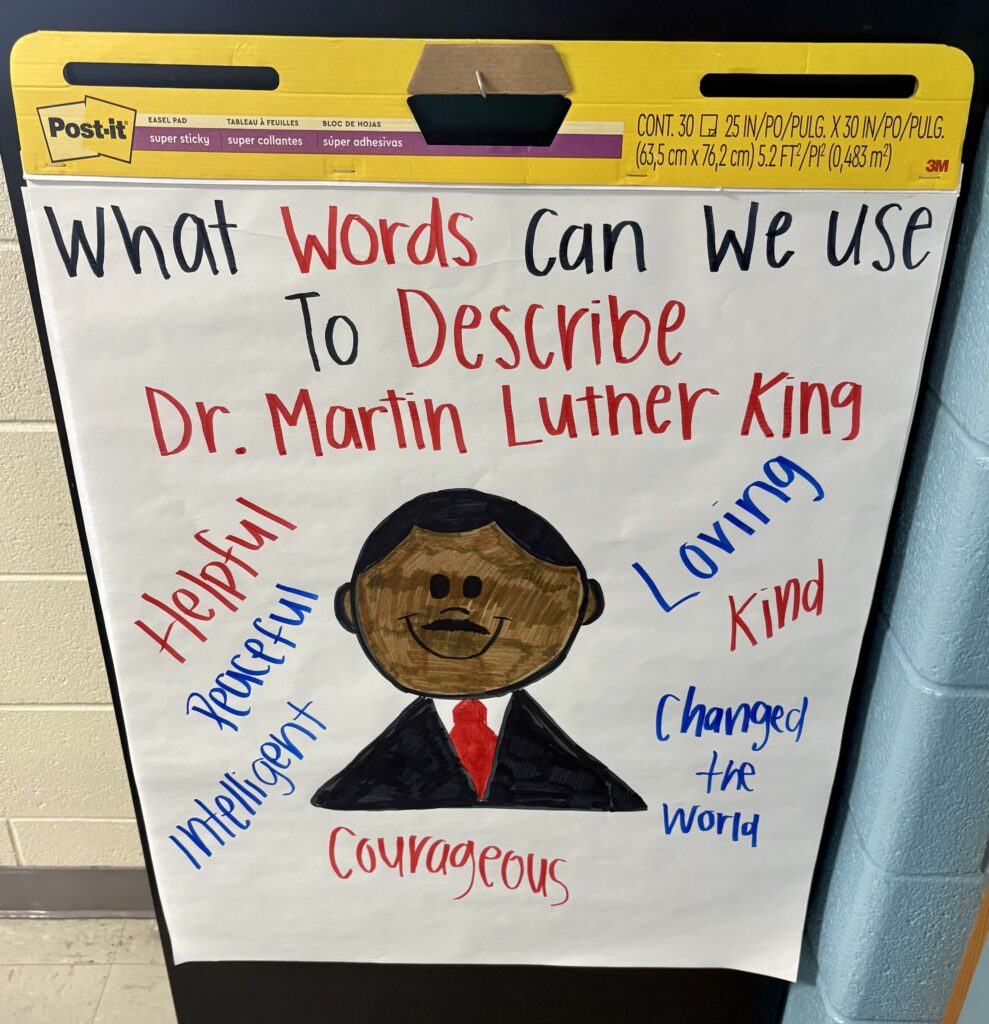 Post-it
EASEL PAD
super sticky
TABLEAU À FEUILLES
super collantes
BLOC DE HOJAS
súper adhesivas
CONT. 30 25 IN/PO/PULG. X 30 IN/PO/PULG.
(63,5 cm x 76,2 cm) 5.2 FT²/PI² (0,483 m²)
3M
What Words Can We Use
To Describe
Dr. Martin Luther King
Helpful
Peaceful
Intelligent
Loving
Kind
Changed
the
World
Courageous